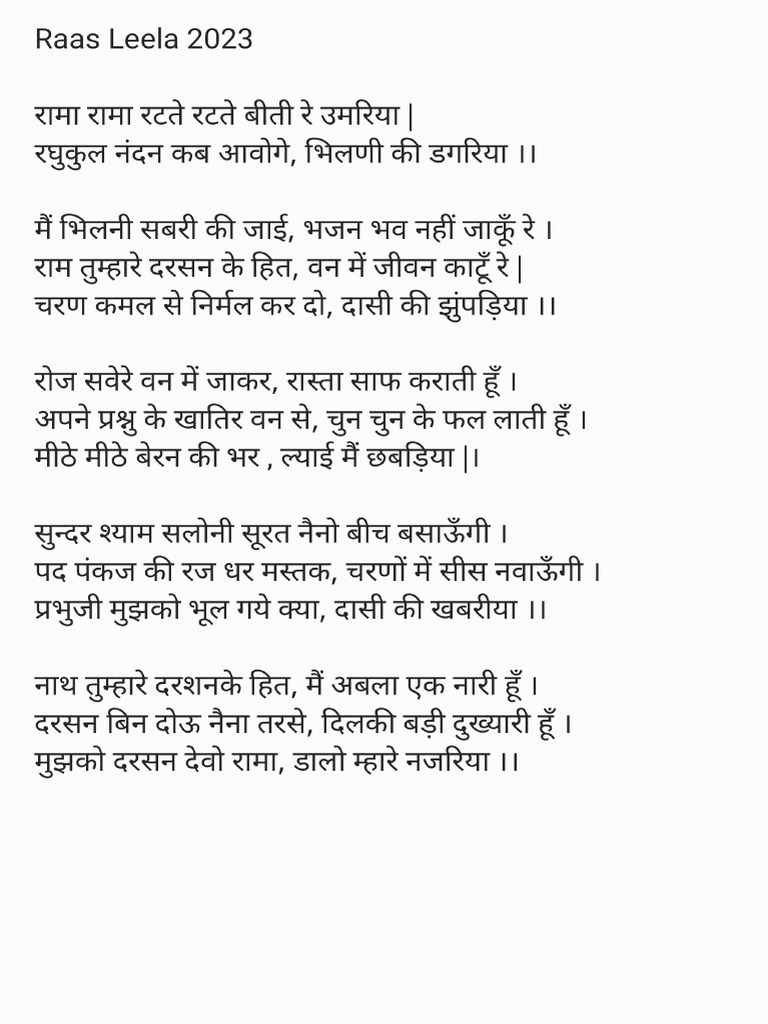 Raas Leela 2023
रामा रामा रटते रटते बीती रे उमरिया |
रघुकुल नंदन कब आवोगे, भिलणी की डगरिया ।।
मैं भिलनी सबरी की जाई, भजन भव नहीं जाकूँ रे ।
राम तुम्हारे दरसन के हित, वन में जीवन काटूँ रे |
चरण कमल से निर्मल कर दो, दासी की झुंपड़िया ।।
रोज सवेरे वन में जाकर, रास्ता साफ कराती हूँ ।
अपने प्रश्नु के खातिर वन से, चुन चुन के फल लाती हूँ ।
मीठे मीठे बेरन की भर , ल्याई मैं छबड़िया |।
सुन्दर श्याम सलोनी सूरत नैनो बीच बसाऊँगी ।
पद पंकज की रज धर मस्तक, चरणों में सीस नवाऊँगी ।
प्रभुजी मुझको भूल गये क्या, दासी की खबरीया ।।
नाथ तुम्हारे दरशनके हित, मैं अबला एक नारी हूँ ।
दरसन बिन दोऊ नैना तरसे, दिलकी बड़ी दुख्यारी हूँ ।
मुझको दरसन देवो रामा, डालो म्हारे नजरिया ।।